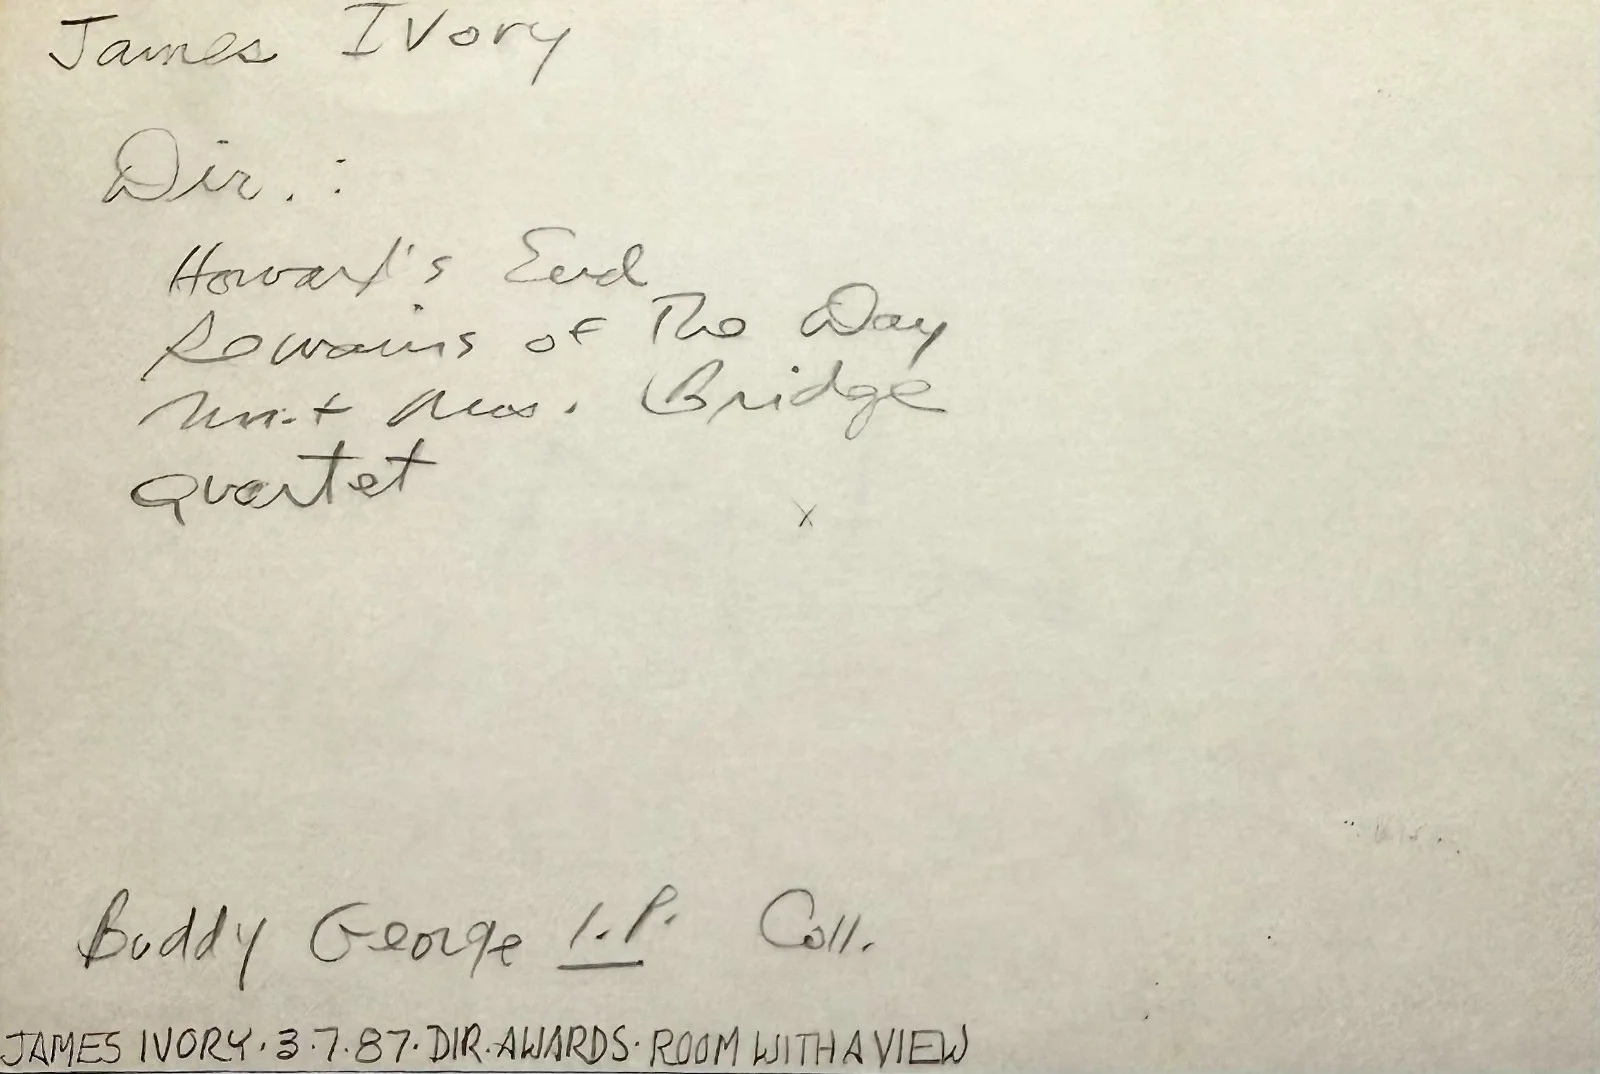 James Ivory
Dir. :
Howard's End
Remains of The Day
Mr. + Mrs. Bridge
Quartet
x
Buddy George I.P. Coll.
JAMES IVORY · 3·7·87· DIR. AWARDS· ROOM WITH A VIEW